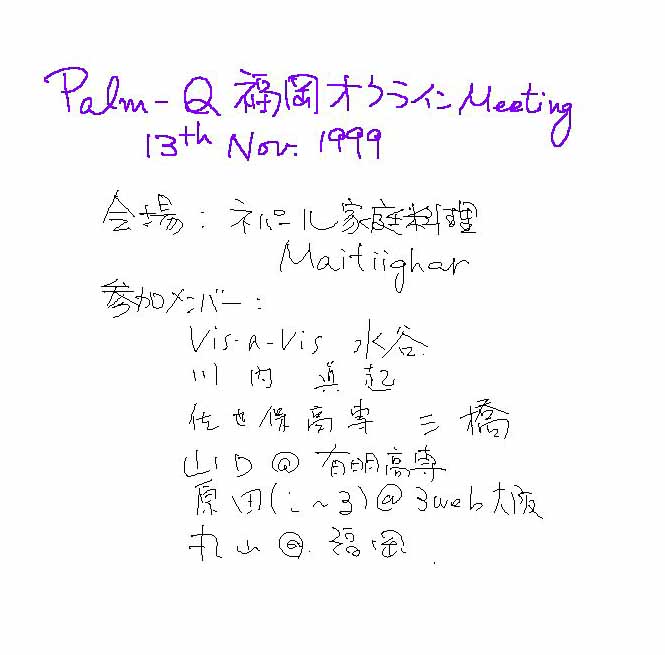 Palm-Q 福岡オフラインMeeting
13th Nov. 1999
会場：ネパール家庭料理
Maitiighar
参加メンバー：
Vis-a-Vis 水谷
川内 真起
佐世保高専 三橋
山口@有明高専
原田(い〜3)@3web大阪
丸山@福岡